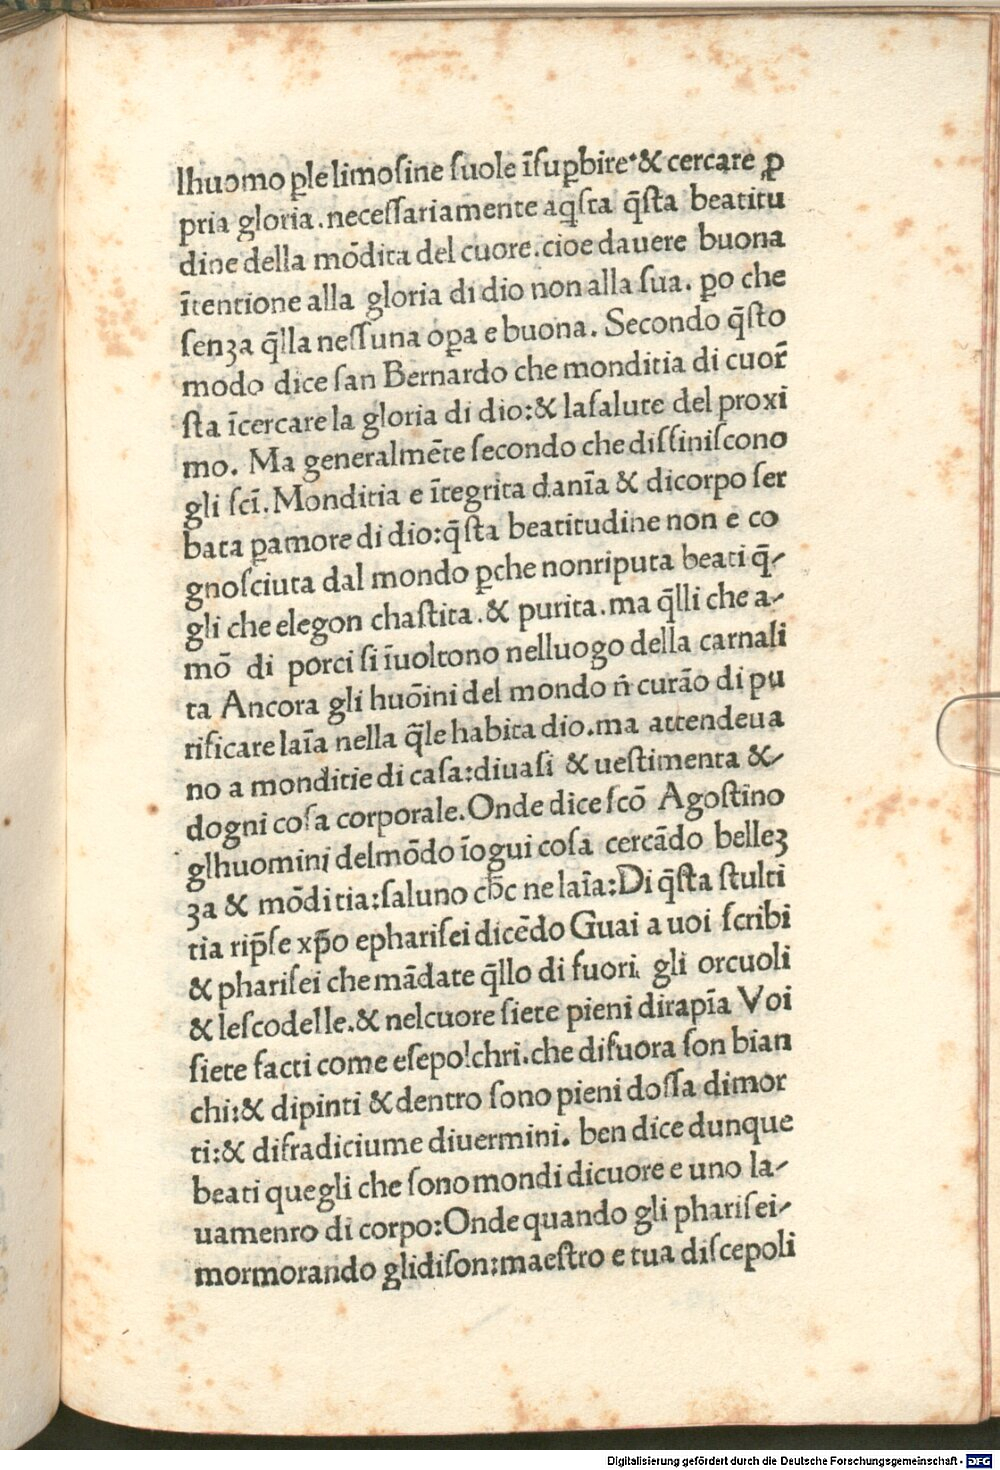 lhuomo ꝑle limoſine ſuole ĩſuꝑbire·& cercare ꝓ
pria gloria.neceſſariamente aq̃ſta q̃ſta beatitu
dine della mõdita del cuore.cioe dauere buona
ĩtentione alla gloria di dio non alla ſua. ꝑo che
ſenza q̃lla neſſuna oꝑa e buona. Secondo q̃ſto
modo dice ſan Bernardo che monditia di cuor̃
ſta ĩcercare la gloria di dio:& laſalute del proxi
mo. Ma generalmẽte ſecondo che diffiniſcono
gli ſcĩ. Monditia e ĩtegrita danĩa & dicorpo ſer
bata ꝑamore di dio:q̃ſta beatitudine non e co
gnoſciuta dal mondo ꝑche nonriputa beati q̃-
gli che elegon chaſtita.& purita.ma q̃lli che a-
mõ di porci ſi ĩuoltono nelluogo della carnali
ta Ancora gli huoĩni del mondo ñ curão di pu
rificare laĩa nella q̃le habita dio.ma attendeua
no a monditie di caſa:diuaſi & ueſtimenta &-
dogni coſa corporale.Onde dice ſcõ Agoſtino
glhuomini delmõdo ĩogui coſa cercãdo bellez
za & mõditia:ſaluno cħc ne laĩa:Di q̃ſta ſtulti
tia rip̃ſe xp̃o ephariſei dicẽdo Guai a uoi ſcribi
& phariſei che mãdate q̃llo di fuori gli orcuoli
& leſcodelle.& nelcuore ſiete pieni dirapĩa Voi
ſiete facti come eſepolchri.che difuora ſon bian
chi:& dipinti & dentro ſono pieni doſſa dimor
ti:& difradiciume diuermini. ben dice dunque
beati quegli che ſono mondi dicuore e uno la-
uamenro di corpo:Onde quando gli phariſei-
mormorando glidiſon:maeſtro e tua diſcepoli
Digitalisierung gefördert durch die Deutsche Forschungsgemeinschaft - DFG